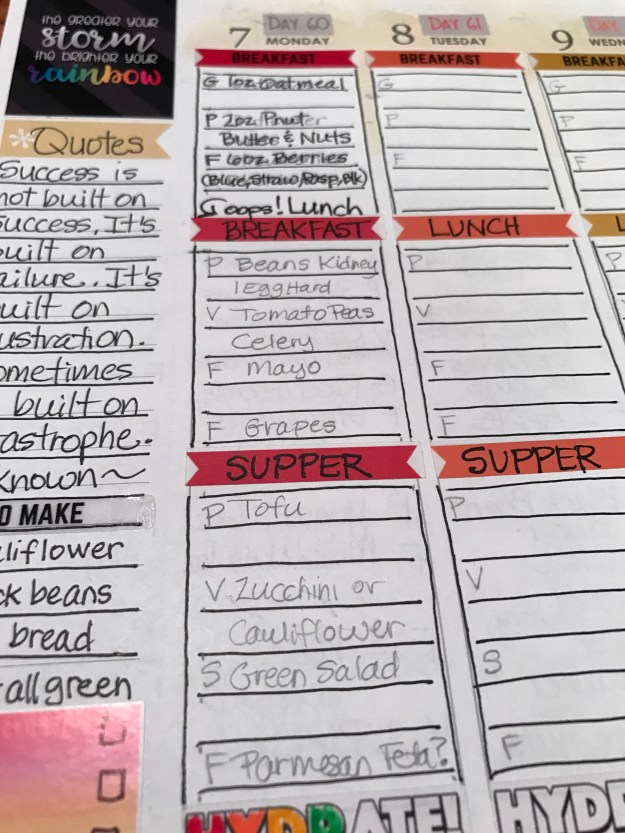 the greater your
storm
the brighter your
rainbow
*Quotes
Success is
not built on
Success, It's
built on
failure. It's
built on
ustration.
ometimes
built on
astrophe.
known~
O MAKE
liflower
ck beans
bread
all green
DAY 60
7 MONDAY
BREAKFAST
G 1oz. Oatmeal
P 2oz.
Butter & Nuts
F 6oz. Berries
(Blue, Straw, Rasp, Blk)
Ooops! Lunch
BREAKFAST
P Beans Kidney
1 Egg Hard
V Tomato Peas
Celery
F Mayo
F Grapes
SUPPER
P Tofu
V Zucchini or
Cauliflower
S Green Salad
F Parmesan Feta?
HYDRATE!
DAY 61
8 TUESDAY
BREAKFAST
G
P
F
LUNCH
P
V
F
F
SUPPER
P
V
S
F
HYDR
DAY
9 WEDN
BREAKFA
G
P
F
L
P